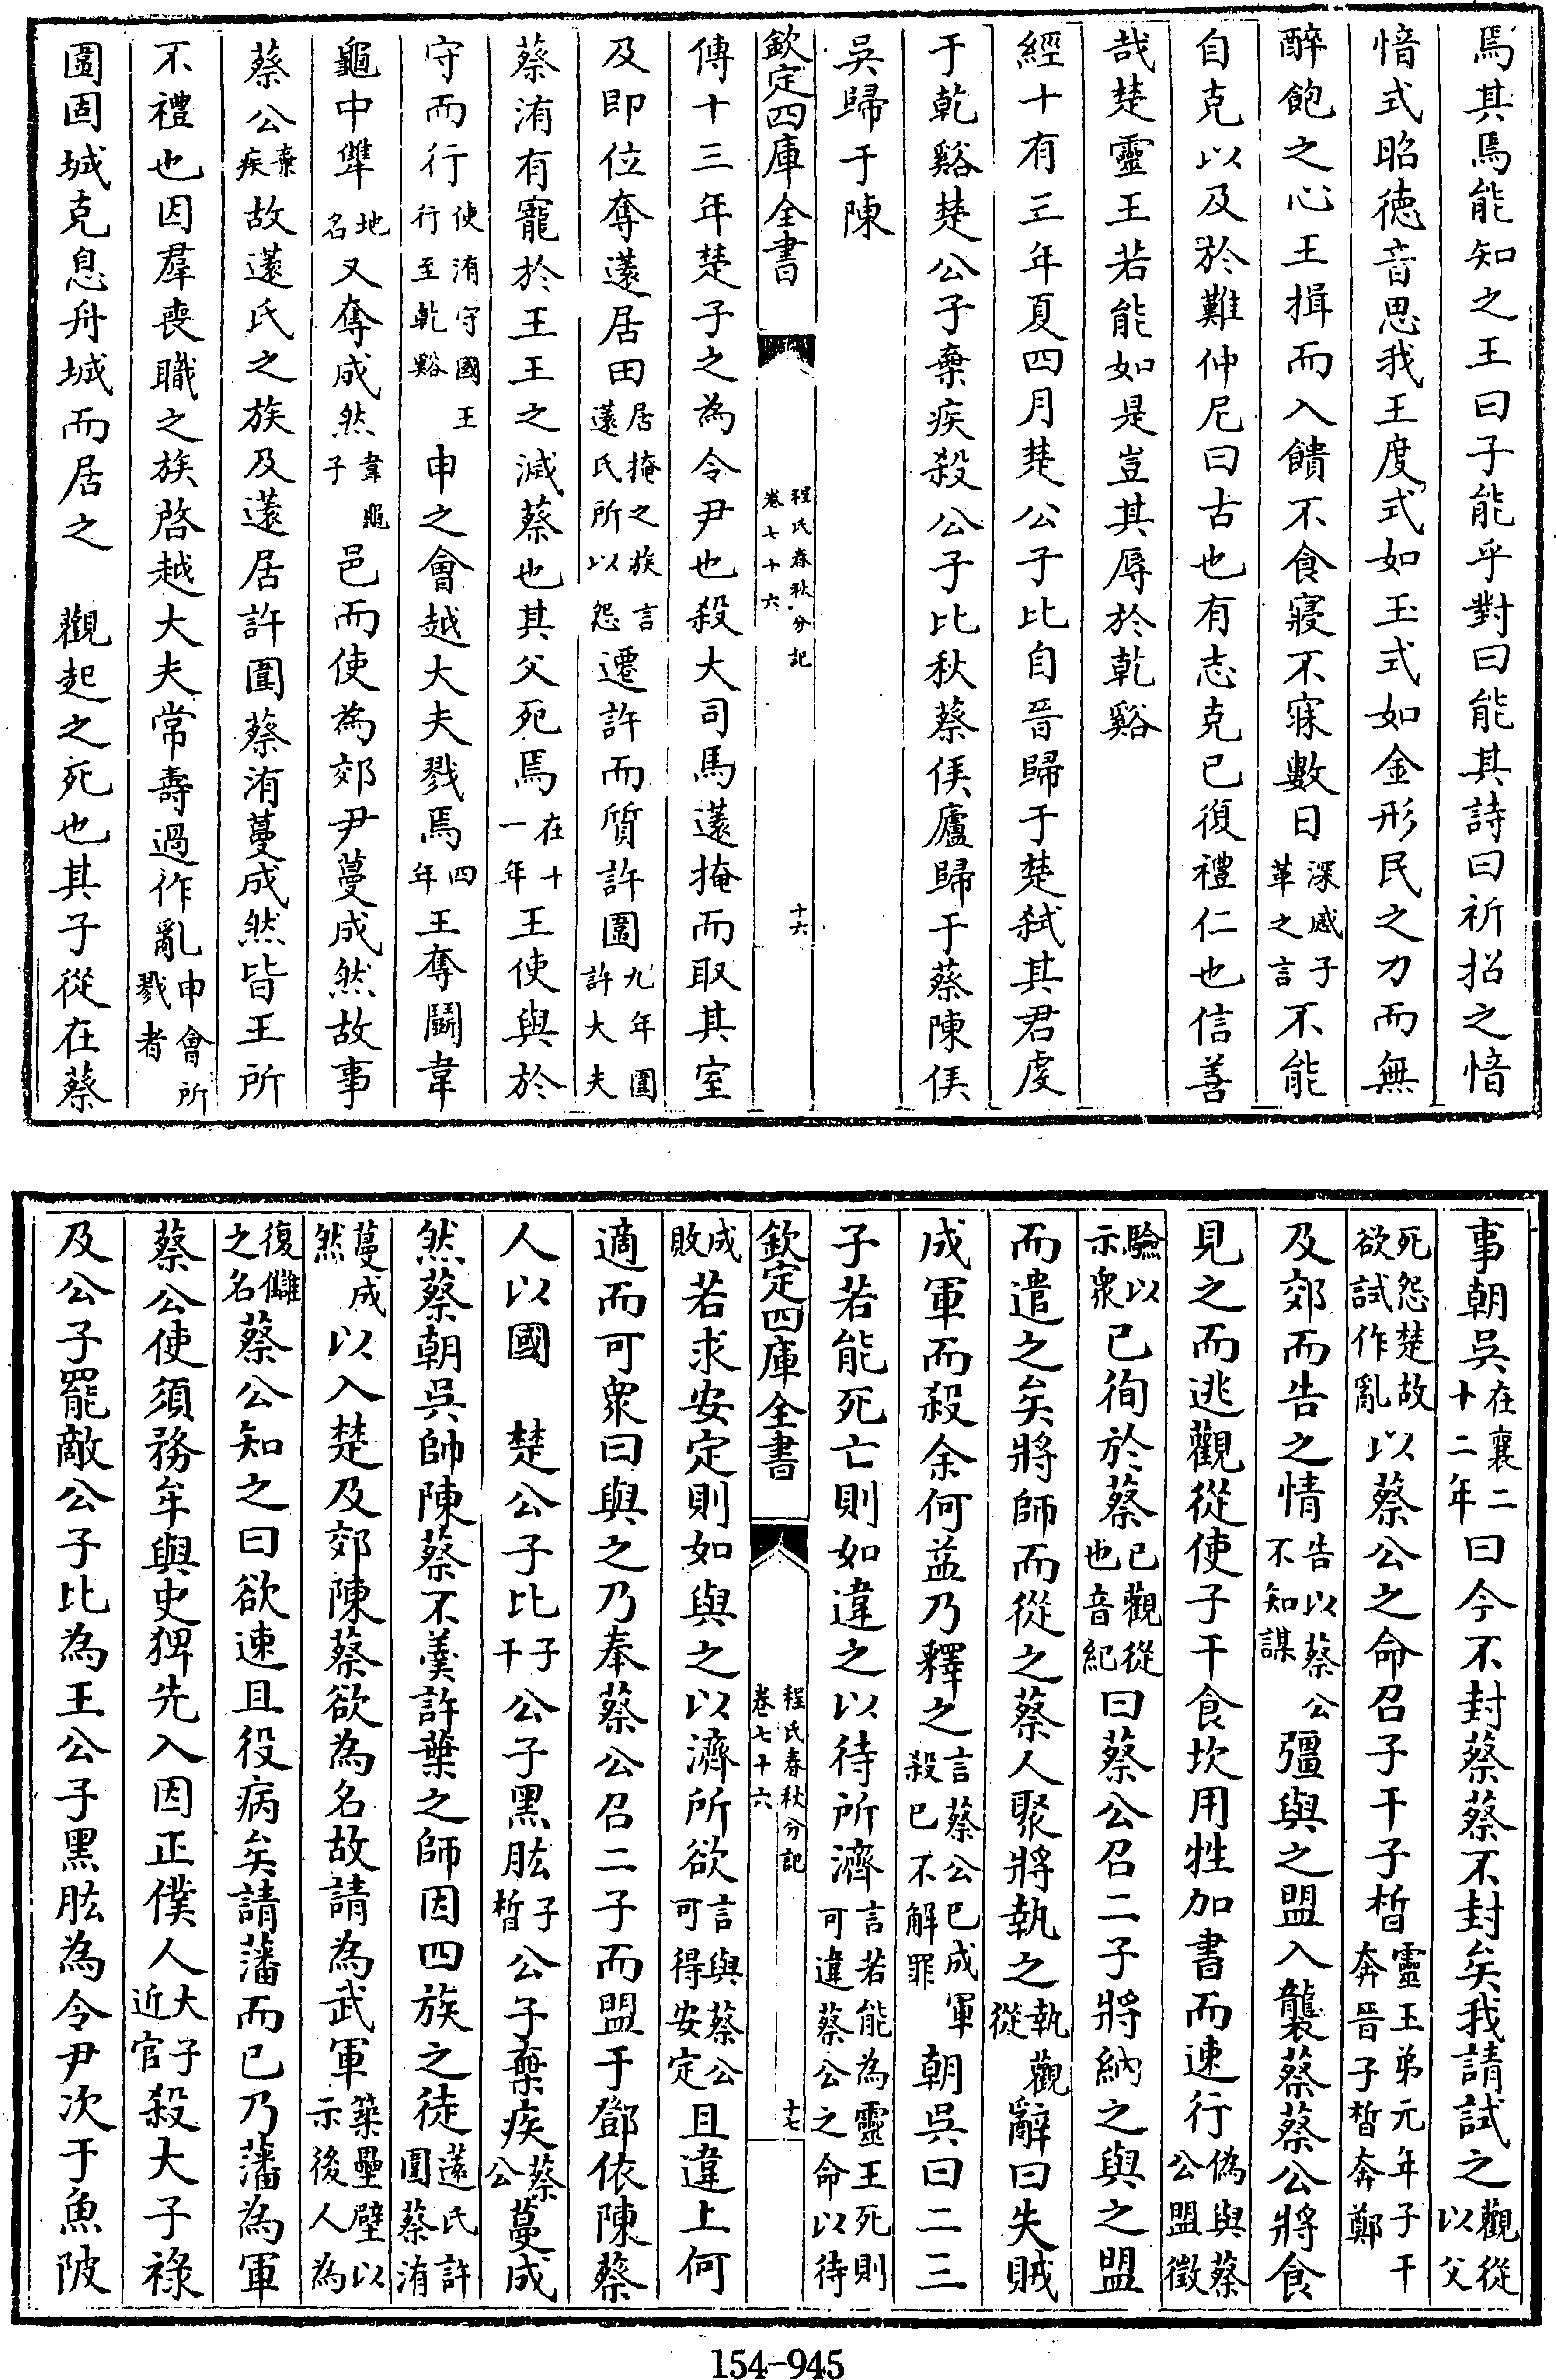 焉其焉能知之王曰子能乎對曰能其詩曰祈招之愔
愔式昭徳音思我王度式如玉式如金形民之力而無
醉飽之心王揖而入饋不食寢不寐數日深感子革之言不能
自克以及於難仲尼曰古也有志克已復禮仁也信善
哉楚靈王若能如是豈其辱於乾谿
經十有三年夏四月楚公子比自晉歸于楚弑其君虔
于乾谿楚公子棄疾殺公子比秋蔡侯廬歸于蔡陳侯
吳歸于陳
欽定四庫全書 程氏春秋分記卷七十六 十六
傳十三年楚子之為令尹也殺大司馬薳掩而取其室
及即位奪薳居田居掩之族言薳氏所以怨遷許而質許圍九年圍許大夫
蔡洧有寵於王王之滅蔡也其父死焉在十一年王使與於
守而行使洧守國王行至乾谿申之會越大夫戮焉四年王奪鬭韋
龜中犨地名又奪成然韋龜子邑而使為郊尹蔓成然故事
蔡公棄疾故薳氏之族及薳居許圍蔡洧蔓成然皆王所
不禮也因羣喪職之族啓越大夫常壽過作亂申會所戮者
圍固城克息舟城而居之 觀起之死也其子從在蔡
事朝吳在襄二十二年曰今不封蔡蔡不封矣我請試之觀從以父
死怨楚故欲試作亂以蔡公之命召子干子晳靈王弟元年子干奔晉子晳奔鄭
及郊而告之情告以蔡公不知謀彊與之盟入襲蔡蔡公將食
見之而逃觀從使子干食坎用牲加書而速行偽與蔡公盟徵
驗以示衆已徇於蔡已觀從也音紀曰蔡公召二子將納之與之盟
而遣之矣將師而從之蔡人聚將執之執觀從辭曰失賊
成軍而殺余何益乃釋之言蔡公已成軍殺已不解罪朝吳曰二三
子若能死亡則如違之以待所濟言若能為靈王死則可違蔡公之命以待
成敗若求安定則如與之以濟所欲言與蔡公可得安定且違上何
欽定四庫全書 程氏春秋分記卷七十六 十七
適而可衆曰與之乃奉蔡公召二子而盟于鄧依陳蔡
人以國 楚公子比子干公子黑肱子晳公子棄疾蔡公蔓成
然蔡朝吳帥陳蔡不羹許葉之師因四族之徒薳氏許圍蔡洧
蔓成然以入楚及郊陳蔡欲為名故請為武軍築壘壁以示後人為
復讎之名蔡公知之曰欲速且役病矣請藩而已乃藩為軍
蔡公使須務牟與史猈先入因正僕人大子近官殺大子祿
及公子罷敵公子比為王公子黑肱為令尹次于魚陂
154-945